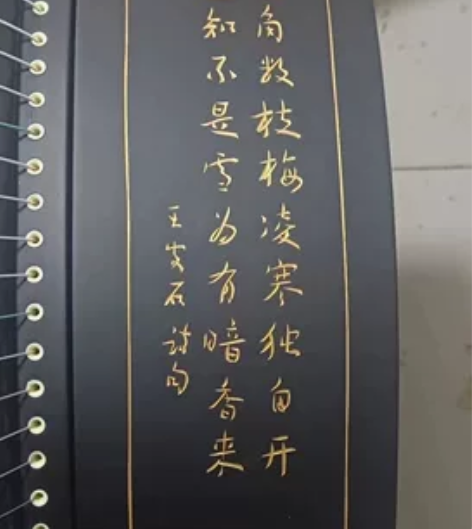 角数枝梅凌寒独自开
知不是雪为有暗香来
王安石诗句